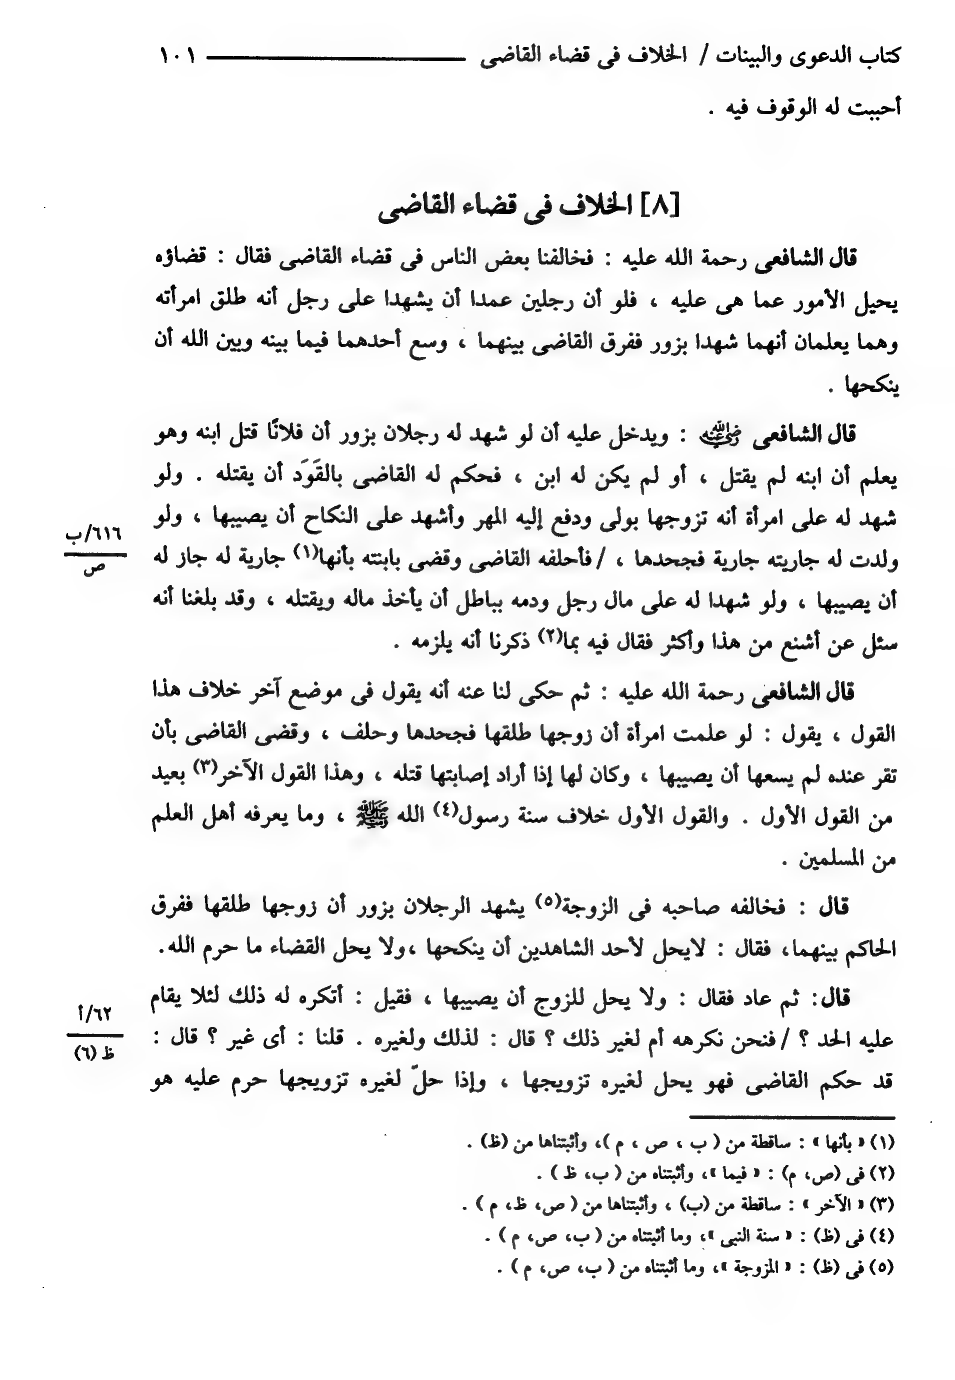 كتاب الدعوى والبينات / الخلاف فى قضاء القاضى ــــــــــــــــــــــــــــــــ ١٠١
أحببت له الوقوف فيه .
[٨] الخلاف فى قضاء القاضى
قال الشافعى رحمة الله عليه : فخالفنا بعض الناس فى قضاء القاضى فقال : قضاؤه
يحيل الأمور عما هى عليه ، فلو أن رجلين عمدا أن يشهدا على رجل أنه طلق امرأته
وهما يعلمان أنهما شهدا بزور ففرق القاضى بينهما ، وسع أحدهما فيما بينه وبين الله أن
ينكحها .
قال الشافعى رضي الله عنه : ويدخل عليه أن لو شهد له رجلان بزور أن فلانًا قتل ابنه وهو
يعلم أن ابنه لم يقتل ، أو لم يكن له ابن ، فحكم له القاضى بالقَوَد أن يقتله . ولو
شهد له على امرأة أنه تزوجها بولى ودفع إليه المهر وأشهد على النكاح أن يصيبها ، ولو
ولدت له جاريته جارية فجحدها ، /فأحلفه القاضى وقضى بابنته بأنها(١) جارية له جاز له
٦١٦/ب
ص
أن يصيبها ، ولو شهدا له على مال رجل ودمه بباطل أن يأخذ ماله ويقتله ، وقد بلغنا أنه
سئل عن أشنع من هذا وأكثر فقال فيه بما(٢) ذكرنا أنه يلزمه .
قال الشافعى رحمة الله عليه : ثم حكى لنا عنه أنه يقول فى موضع آخر خلاف هذا
القول ، يقول : لو علمت امرأة أن زوجها طلقها فجحدها وحلف ، وقضى القاضى بأن
تقر عنده لم يسعها أن يصيبها ، وكان لها إذا أراد إصابتها قتله ، وهذا القول الآخر(٣) بعيد
من القول الأول . والقول الأول خلاف سنة رسول(٤) الله ﷺ ، وما يعرفه أهل العلم
من المسلمين .
قال : فخالفه صاحبه فى الزوجة(٥) يشهد الرجلان بزور أن زوجها طلقها ففرق
الحاكم بينهما، فقال : لايحل لأحد الشاهدين أن ينكحها ،ولا يحل القضاء ما حرم الله.
قال: ثم عاد فقال : ولا يحل للزوج أن يصيبها ، فقيل : أتكره له ذلك لئلا يقام
عليه الحد ؟ /فنحن نكرهه أم لغير ذلك ؟ قال : لذلك ولغيره . قلنا : أى غير ؟ قال :
٦٢/أ
ظ (٦)
قد حكم القاضى فهو يحل لغيره تزويجها ، وإذا حلّ لغيره تزويجها حرم عليه هو
(١) « بأنها » : ساقطة من ( ب ، ص ، م )، وأثبتناها من (ظ) .
(٢) فى (ص، م) : « فيما »، وأثبتناه من ( ب، ظ ) .
(٣) « الآخر » : ساقطة من (ب) ، وأثبتناها من ( ص، ظ، م ) .
(٤) فى (ظ) : « سنة النبى »، وما أثبتناه من ( ب، ص، م ) .
(٥) فى (ظ) : « المزوجة »، وما أثبتناه من ( ب، ص، م ) .